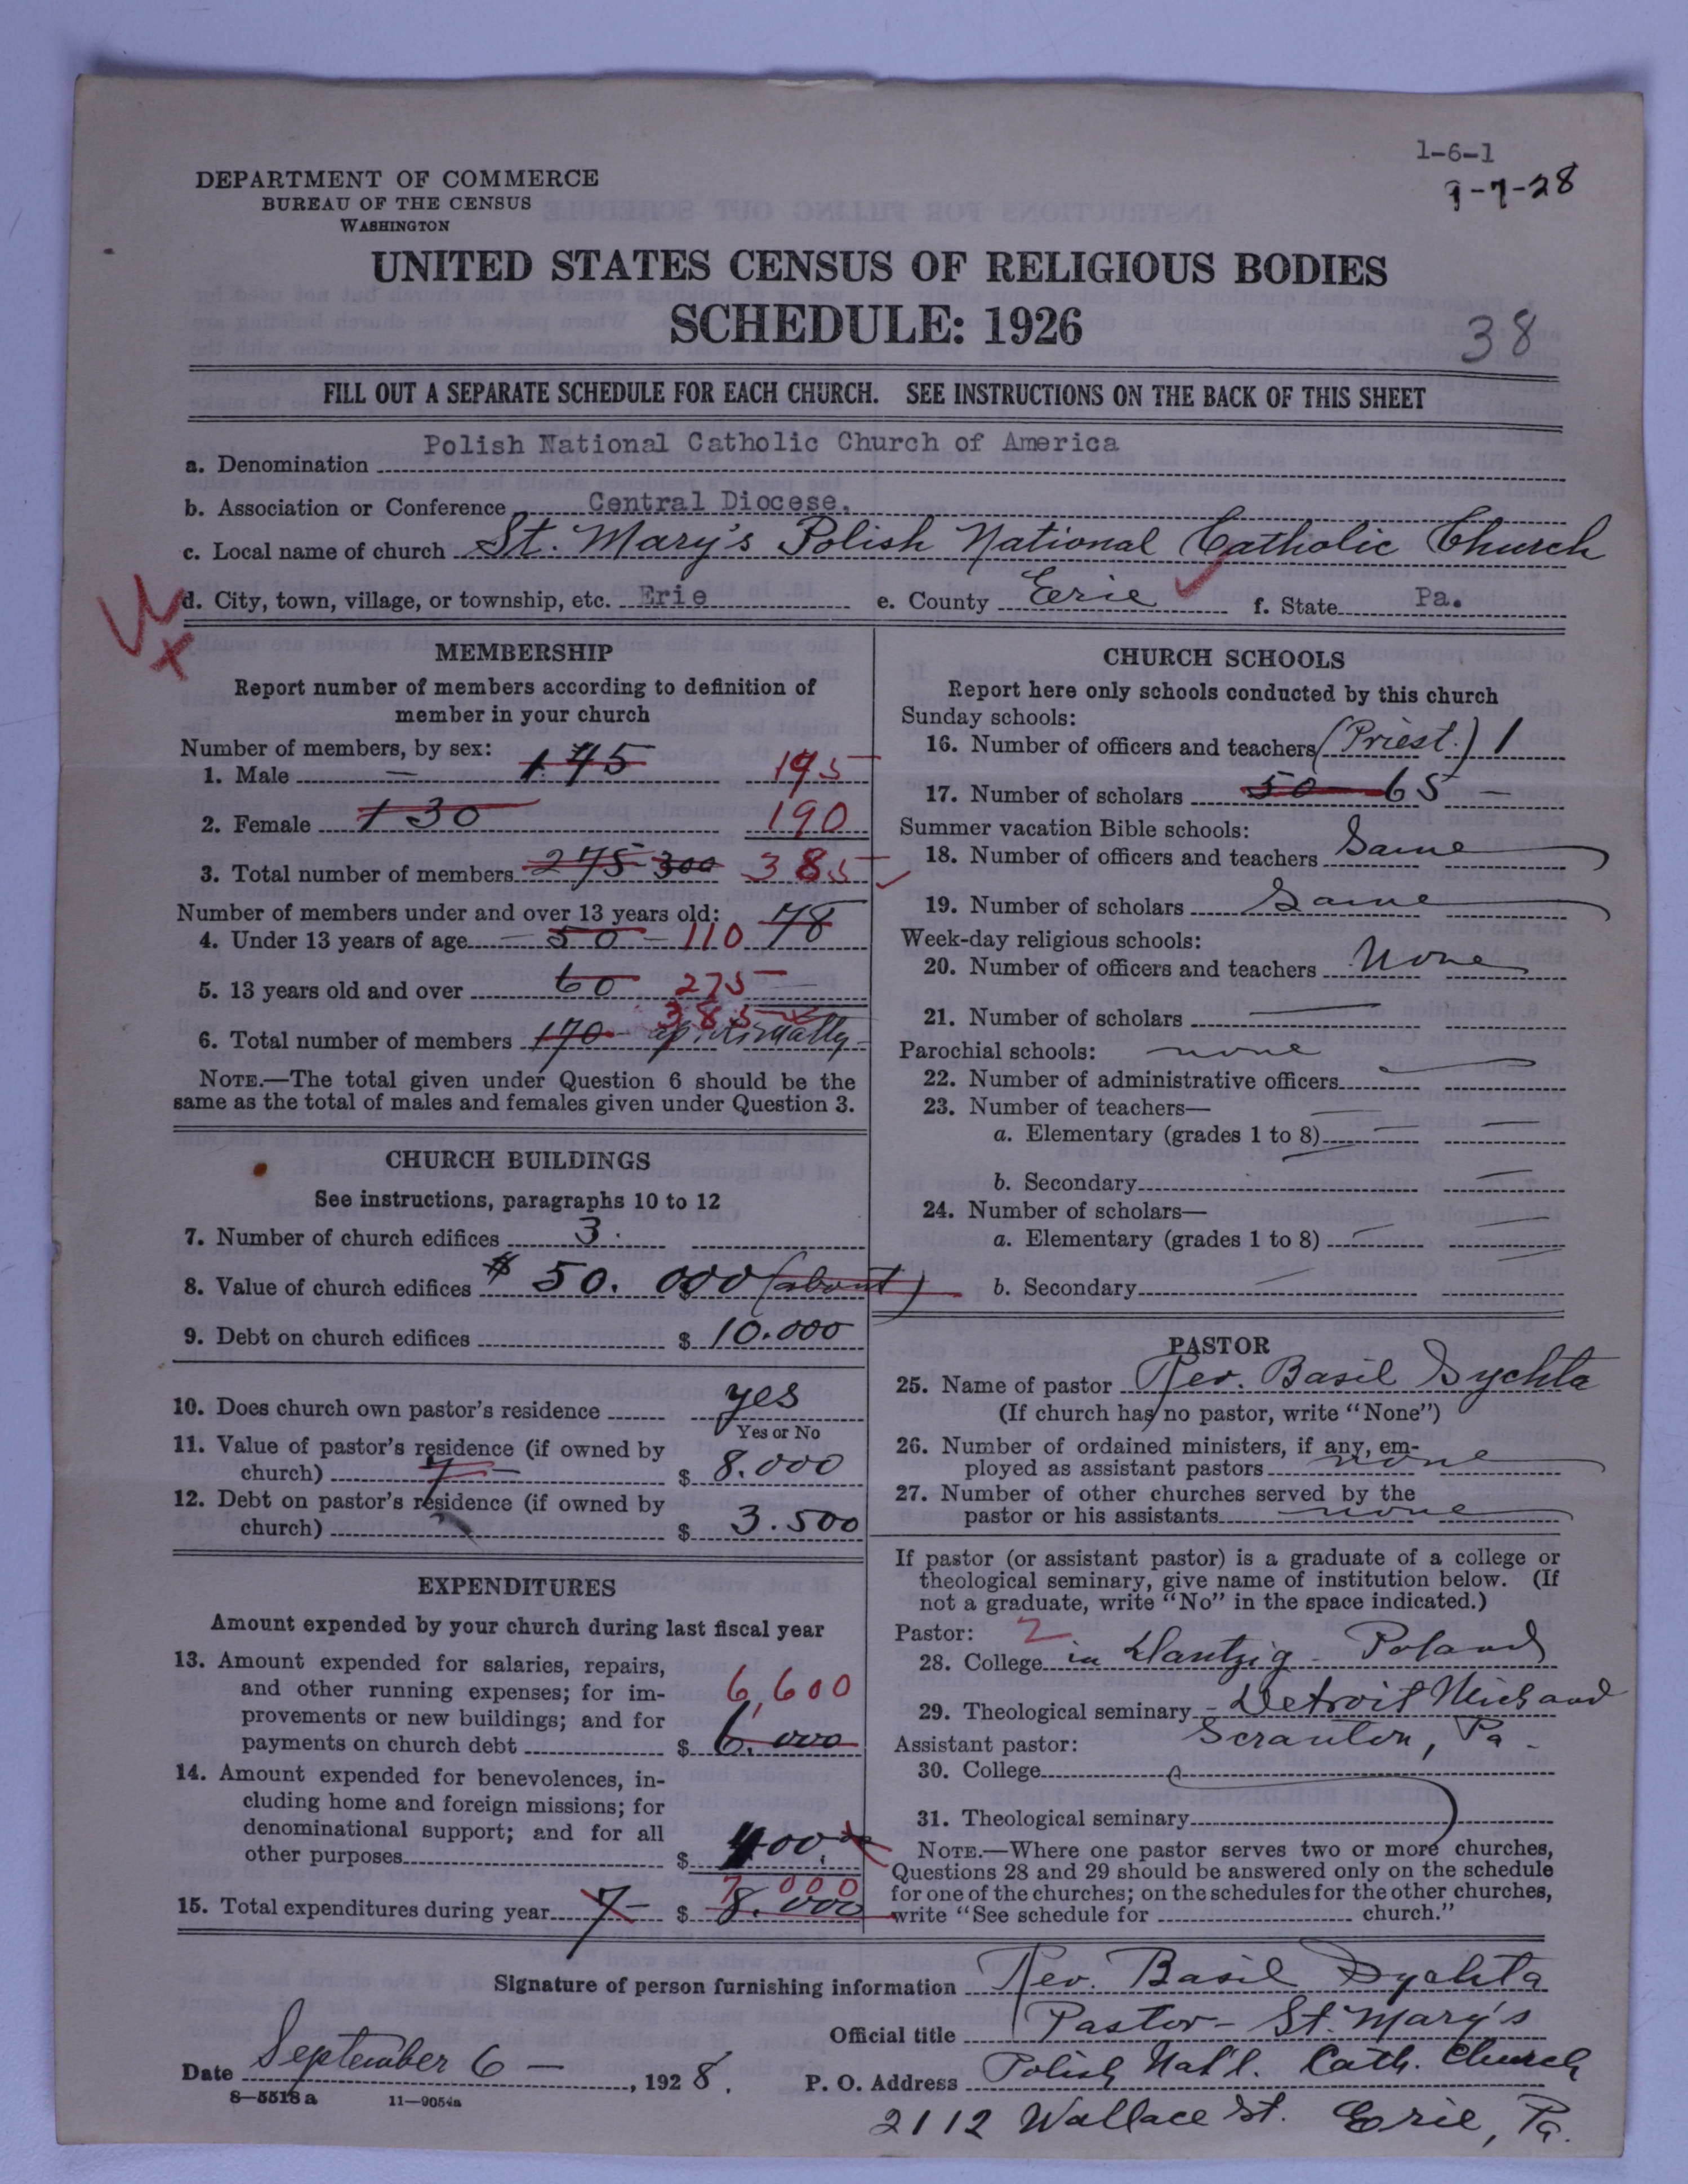 1-6-1
9-7-28
DEPARTMENT OF COMMERCE
BUREAU OF THE CENSUS
WASHINGTON
UNITED STATES CENSUS OF RELIGIOUS BODIES
SCHEDULE: 1926
38
FILL OUT A SEPARATE SCHEDULE FOR EACH CHURCH. SEE INSTRUCTIONS ON THE BACK OF THIS SHEET
a. Denomination Polish National Catholic Church of America
b. Association or Conference Central Diocese.
c. Local name of church St. Mary's Polish National Catholic Church
d. City, town, village, or township, etc. Erie e. County Erie f. State Pa.
MEMBERSHIP
Report number of members according to definition of
member in your church
Number of members, by sex:
1. Male 145 195
2. Female 130 190
3. Total number of members 275 300 385
Number of members under and over 13 years old:
4. Under 13 years of age 50 110 78
5. 13 years old and over 60 275
385
6. Total number of members 170
NOTE.—The total given under Question 6 should be the
same as the total of males and females given under Question 3.
CHURCH BUILDINGS
See instructions, paragraphs 10 to 12
7. Number of church edifices 3.
8. Value of church edifices $ 50.000 (about)
9. Debt on church edifices $ 10.000
10. Does church own pastor's residence yes
Yes or No
11. Value of pastor's residence (if owned by
church) $ 8.000
12. Debt on pastor's residence (if owned by
church) $ 3.500
EXPENDITURES
Amount expended by your church during last fiscal year
13. Amount expended for salaries, repairs,
and other running expenses; for im-
provements or new buildings; and for
payments on church debt $ 6,600
6.000
14. Amount expended for benevolences, in-
cluding home and foreign missions; for
denominational support; and for all
other purposes $ 400.00
7,000
15. Total expenditures during year 7- $ 8.000
CHURCH SCHOOLS
Report here only schools conducted by this church
Sunday schools:
16. Number of officers and teachers (Priest.) 1
17. Number of scholars 50 65 —
Summer vacation Bible schools:
18. Number of officers and teachers Same
19. Number of scholars Same
Week-day religious schools:
20. Number of officers and teachers None
21. Number of scholars —
Parochial schools: none
22. Number of administrative officers
23. Number of teachers—
a. Elementary (grades 1 to 8)
b. Secondary
24. Number of scholars—
a. Elementary (grades 1 to 8)
b. Secondary
PASTOR
25. Name of pastor Rev. Basil Sychta
(If church has no pastor, write "None")
26. Number of ordained ministers, if any, em-
ployed as assistant pastors none
27. Number of other churches served by the
pastor or his assistants none
If pastor (or assistant pastor) is a graduate of a college or
theological seminary, give name of institution below. (If
not a graduate, write "No" in the space indicated.)
Pastor: 2
28. College in Dantzig - Poland
29. Theological seminary - Detroit Mich and
Scranton, Pa -
Assistant pastor:
30. College
31. Theological seminary
NOTE.—Where one pastor serves two or more churches,
Questions 28 and 29 should be answered only on the schedule
for one of the churches; on the schedules for the other churches,
write "See schedule for church."
Signature of person furnishing information Rev. Basil Sychta
Official title Pastor - St. Mary's
Date September 6 —, 1928.
P. O. Address Polish Nat'l. Cath. Church
2112 Wallace St. Erie, Pa.
8—5518 a 11—9054a